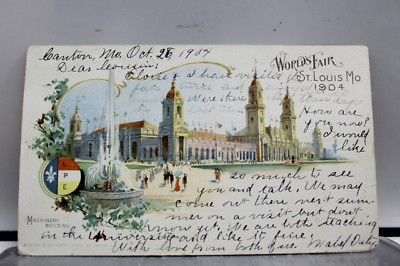 Canton, Mo. Oct. 26 1904
Dear Cousins:
WORLD'S FAIR
ST. LOUIS MO
1904.
Eloise & I have visited
fair
Were there days
How are
you now?
I would
like
so much to see
you and talk. We may
come out there next sum-
mer on a visit but don't
know yet. We are both teaching
in the University and like it fine!
With love from both of us. Mabel
L P E
MACHINERY
BUILDING